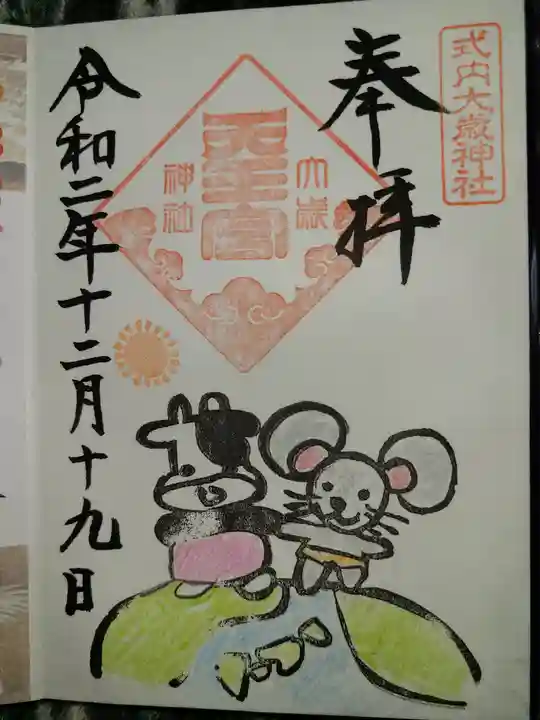 式内大歳神社
奉拝
大歳
天王宮
神社
令和二年十二月十九日